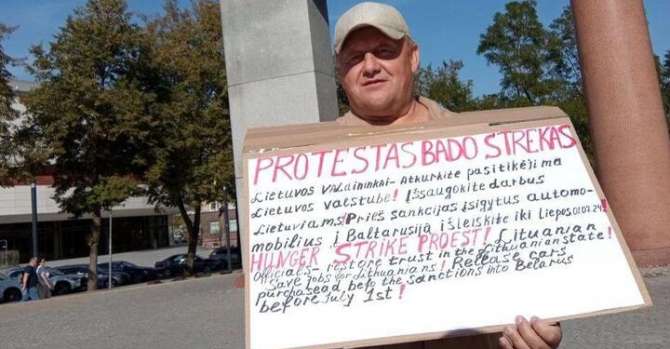 PROTESTAS BADO STREKAS
Lietuvos Valdininkai - Atkurkite pasitikėjima
Lietuvos valstube! Išsaugokite darbus
Lietuviams! Prieš sankcijas įsigytus automo-
mobilius į Baltarusiją išleiskite iki liepos 01.07.24!
HUNGER STRIKE PROEST! Lithuanian
Officials - restore trust in the Lithuanian state!
Save jobs for Lithuanians! Release cars
purchasead befo the sanctions into Belarus
before July 1st!